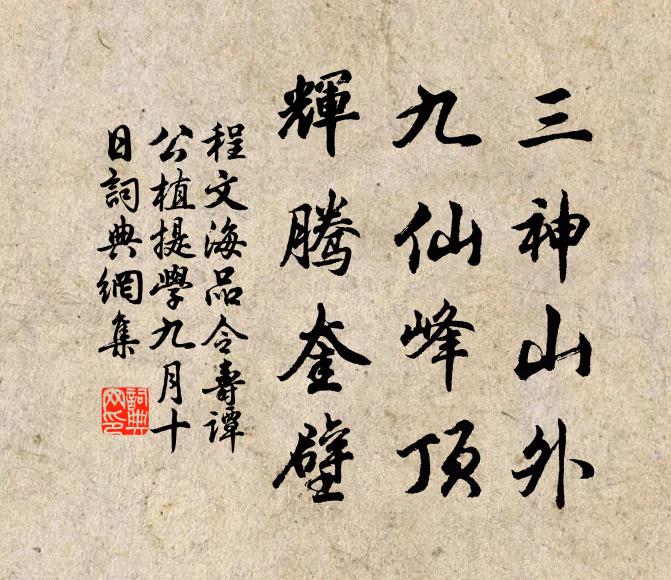 三神山外
九仙峰顶
輝腾奎壁
程文海品令壽谭
公植提學九月十
日詞典網集
詞典
网印